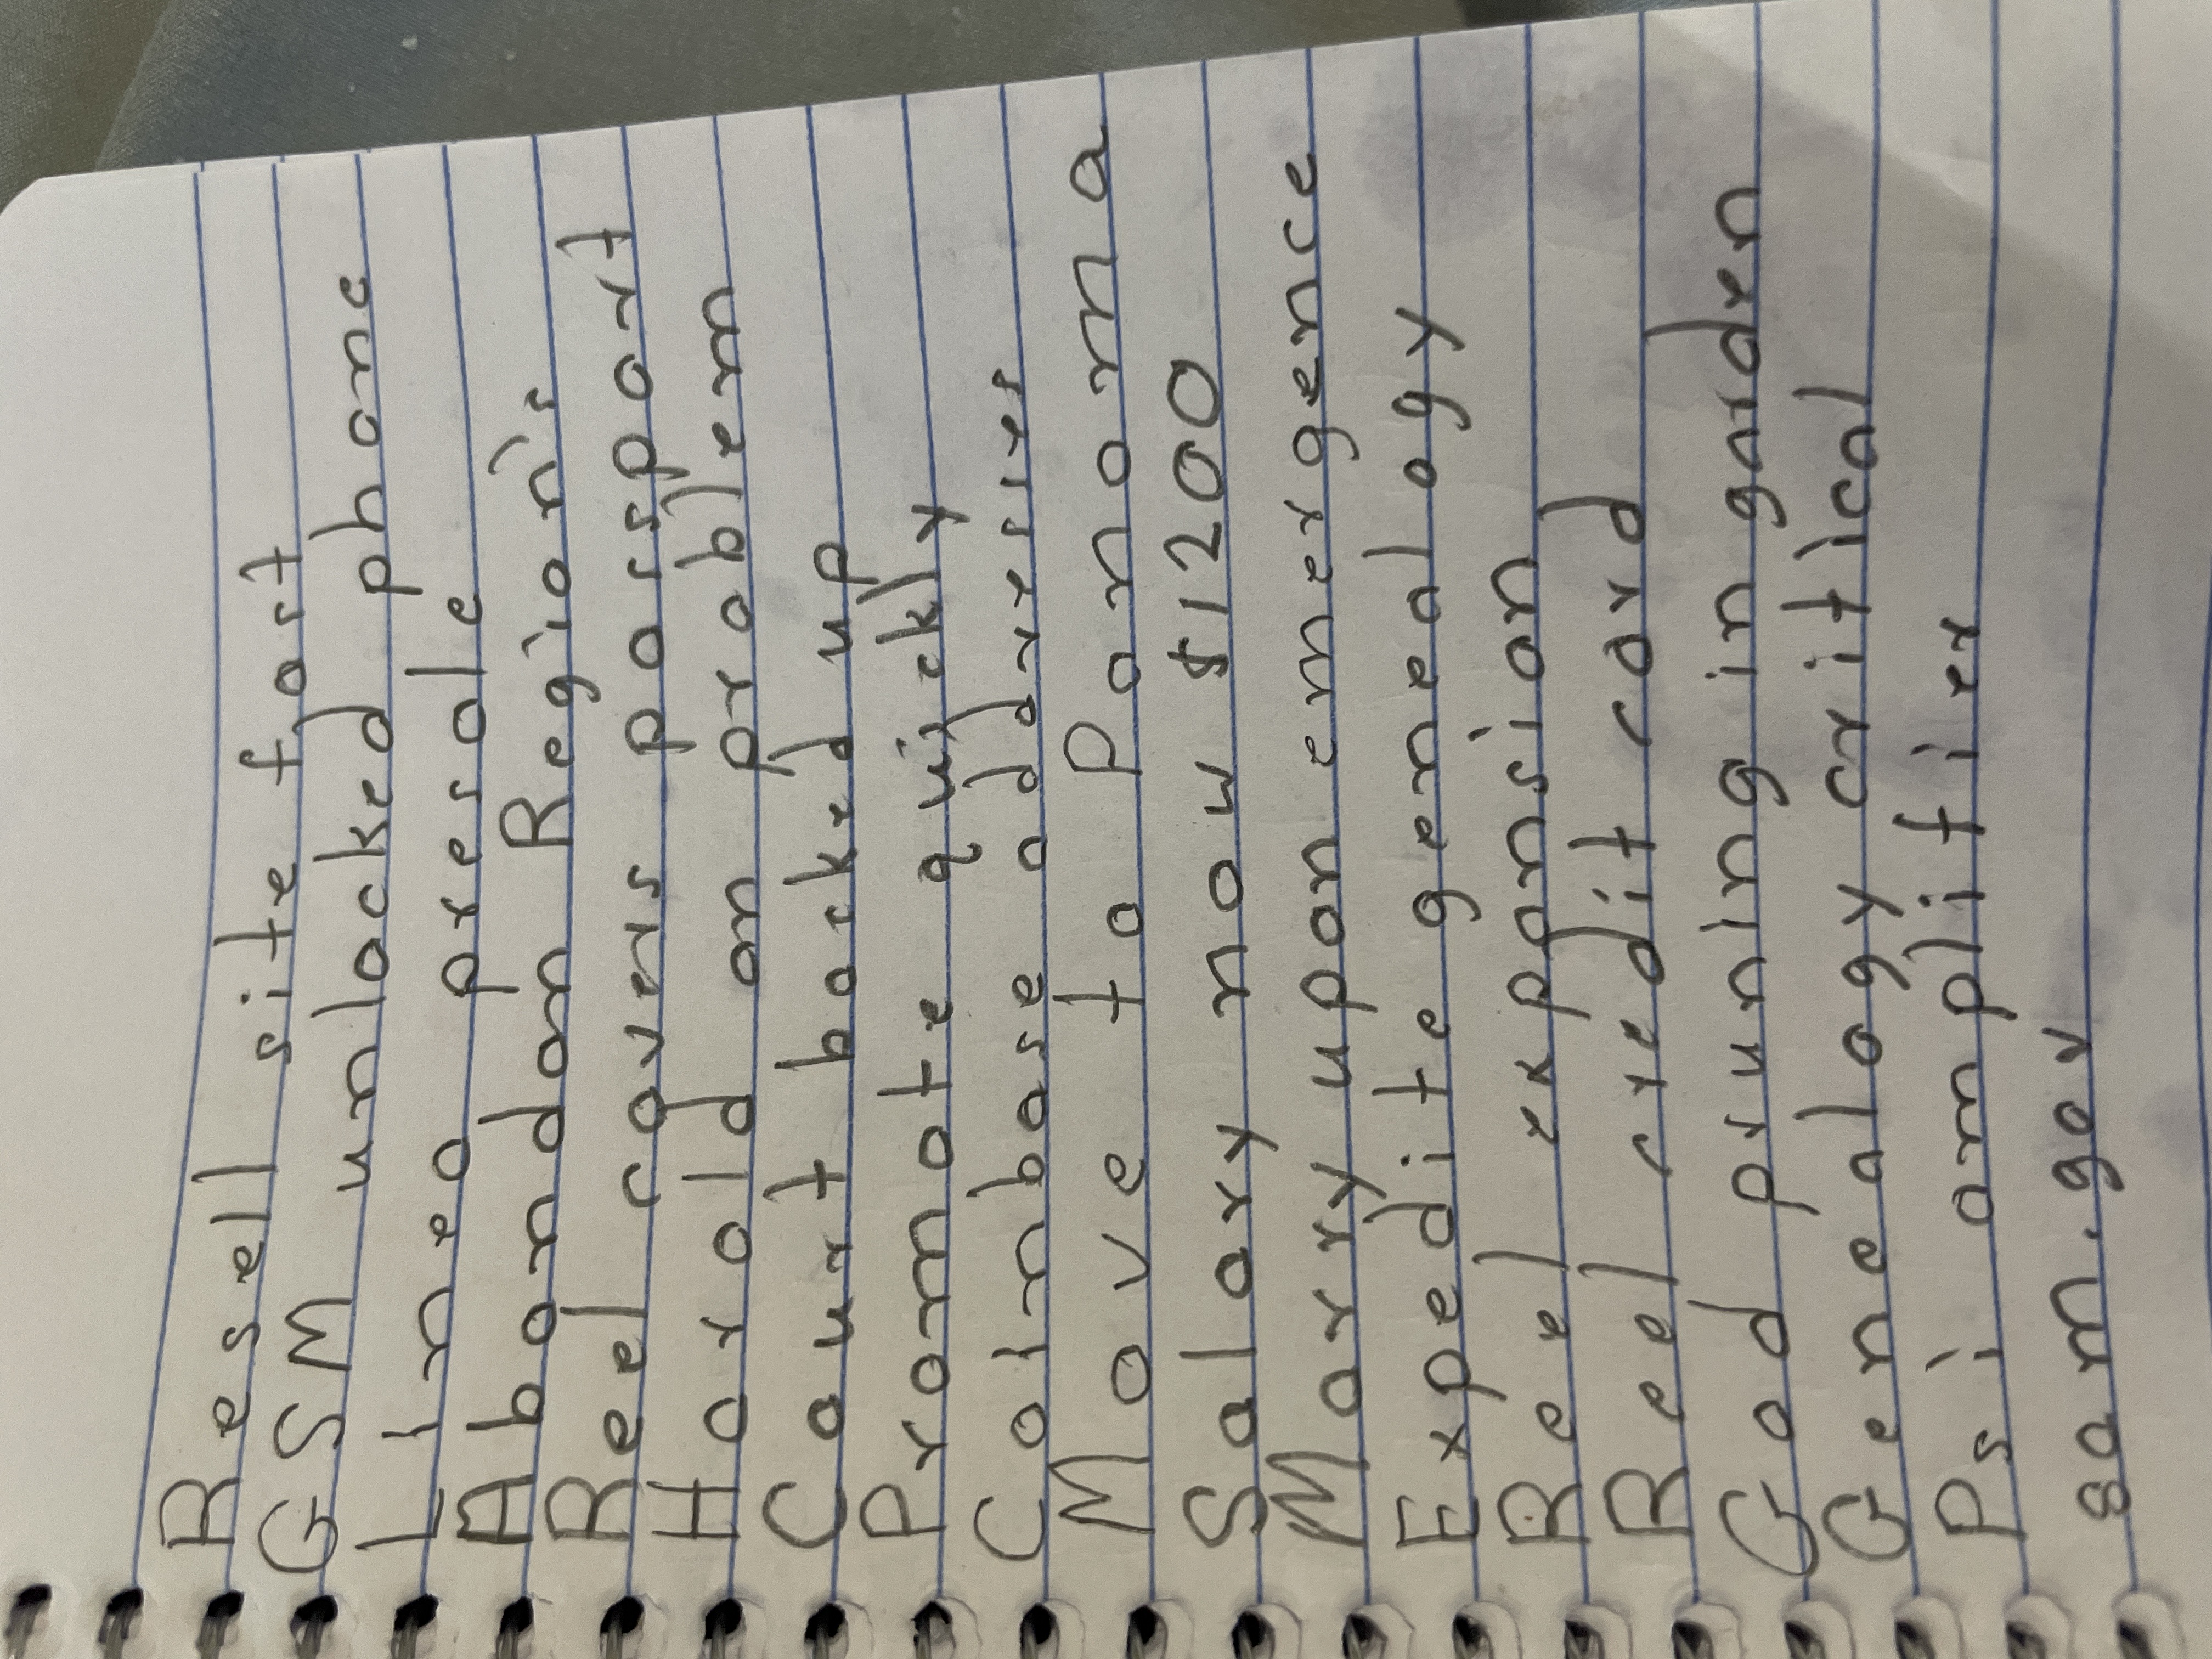 Resell site fast
GSM unlocked phone
Linea presale
Abandon Region's
Rel covers passport
Harold an problem
Court backed up
Promote quickly
Coinbase addresses
Move to Panama
Salary now $1200
Marry upon emergence
Expedite genealogy
Rel expansion
Rel credit card
God pruning in garden
Genealogy critical
Psi amplifier
sam.gov